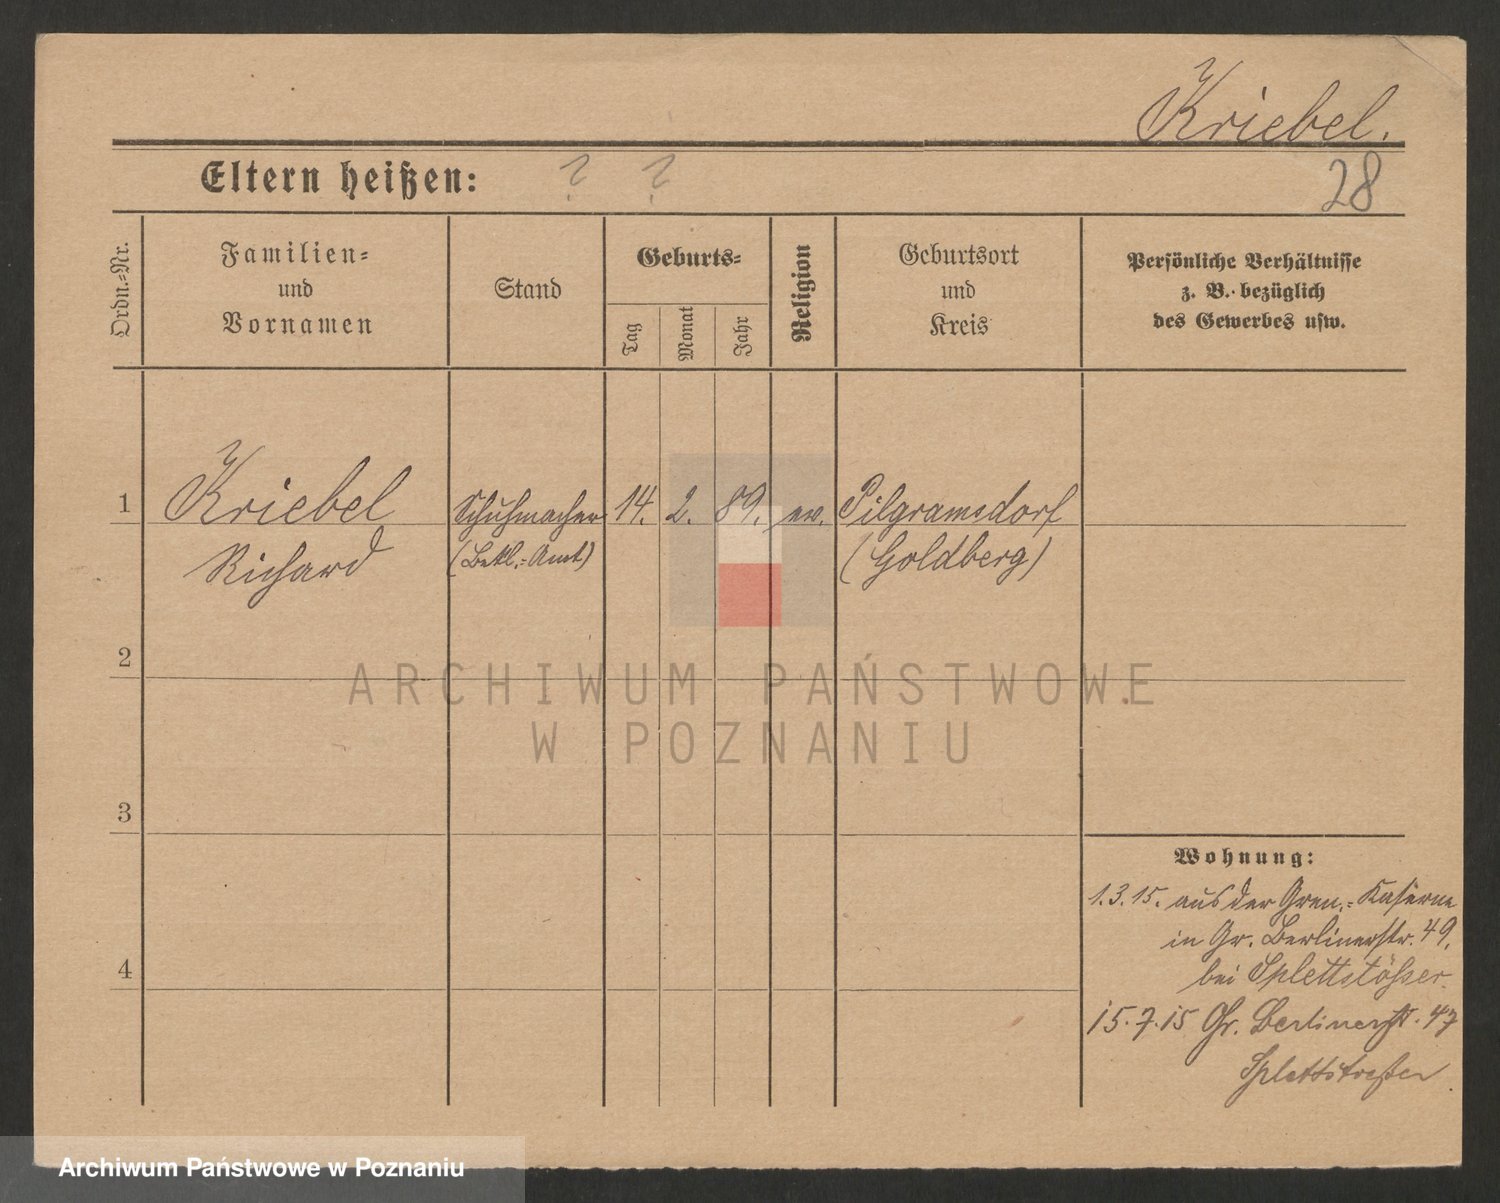 Kriebel.
Eltern heißen: ? ?
28
Ordn.-Nr.
Familien-
und
Vornamen
Stand
Geburts-
Tag
Monat
Jahr
Religion
Geburtsort
und
Kreis
Persönliche Verhältnisse
z. B. bezüglich
des Gewerbes usw.
1 Kriebel Schuhmacher 14. 2. 89. ev. Pilgramsdorf
Richard (Bekl.-Amt) (Goldberg)
2
ARCHIWUM PAŃSTWOWE
W POZNANIU
3
Wohnung:
1.3.15. aus der Gren.-Kaserne
in Gr. Berlinerstr. 49.
bei Splettstößer.
4
15.7.15 Gr. Berlinerstr. 47
Splettstoeßer
Archiwum Państwowe w Poznaniu